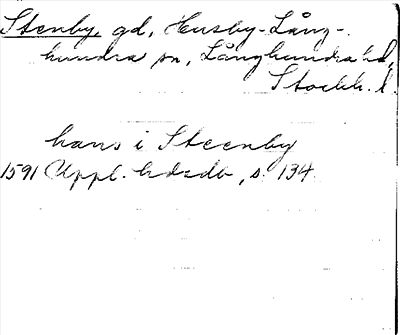 Stenby, gd, Husby-Lång-
hundra sn, Långhundra hd,
Stockh. l.
hans i Steenby
1591 Uppl. hdsdb, s. 134.